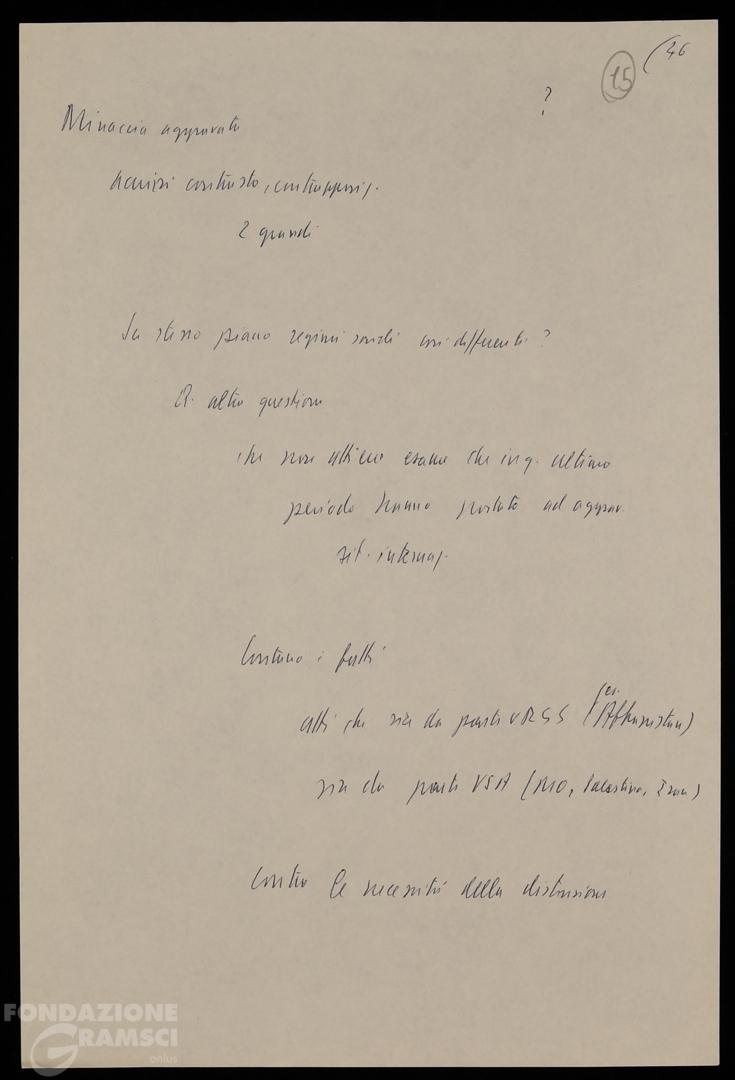 (46
15
?
Minaccia aggravata
acuirsi contrasto, contrapposiz.
2 grandi
Su stesso piano regimi sociali così differenti?
R. altra questione
che non attiene esame che in q. ultimo
periodo hanno portato ad aggrav.
sit. internaz.
Contano i fatti
(es.
atti che sia da parte URSS Afghanistan)
sia da parte USA (MO, Palestina, Iran)
contro le necessità della distensione
FONDAZIONE
GRAMSCI
onlus